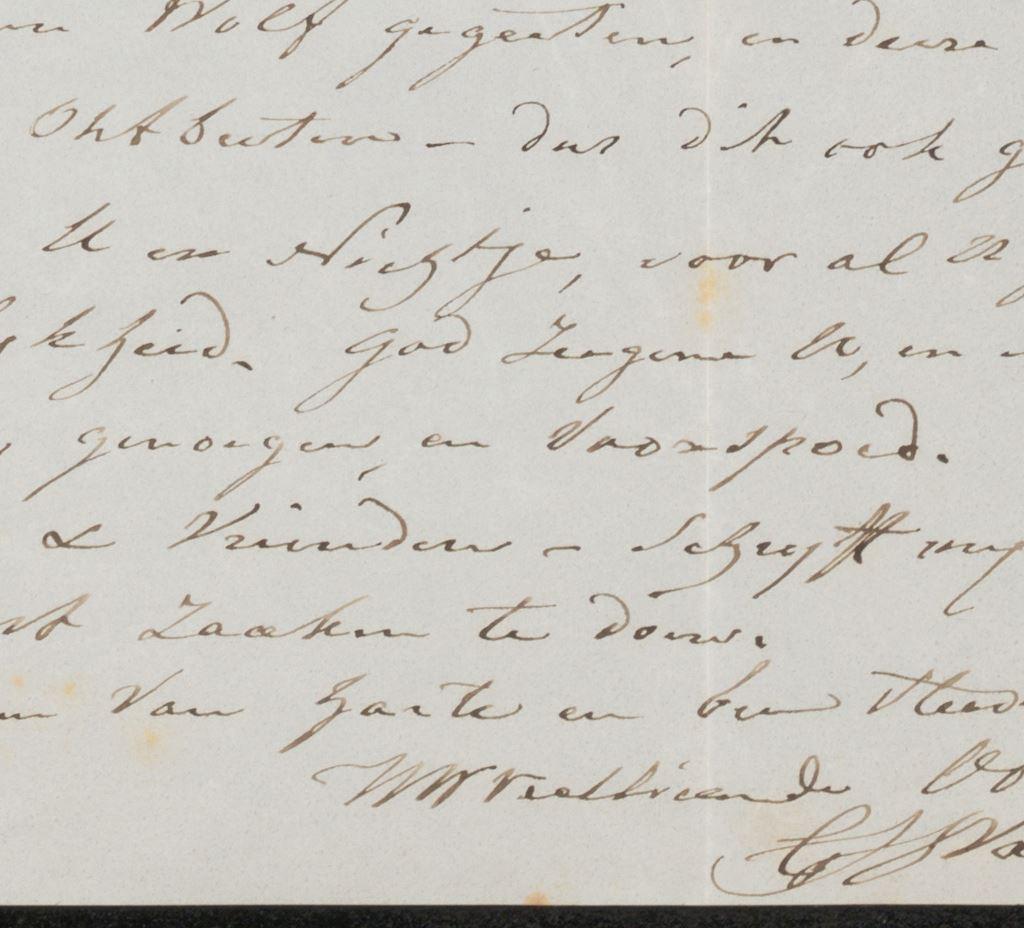 Wolf gegeeten, en deeze
Ontbeeten - dus dit ook g
U en Nichtje, voor al U
ykheid. God Zeegene U, en
genoegen, en Voorspoed.
& Vrienden - Schryft my
Zaaken te doen.
Van harte en ben steeds
UWVeelliefhebbende